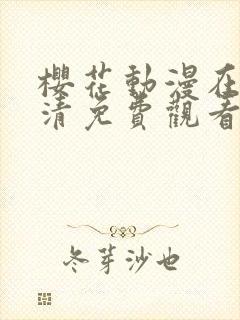 櫻花動漫在
清免費觀看
冬芽沙也